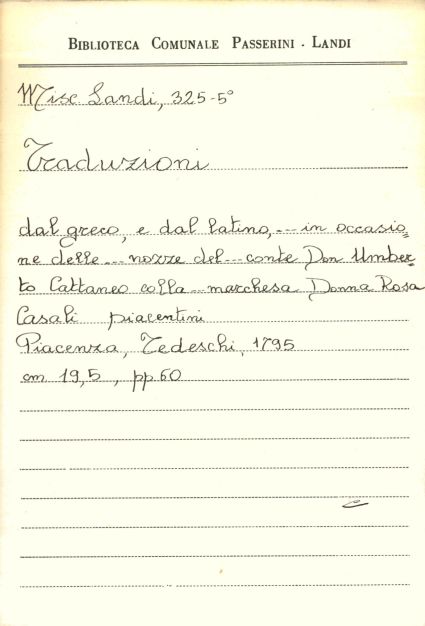 BIBLIOTECA COMUNALE PASSERINI - LANDI
Misc Landi, 325-5°
Traduzioni
dal greco, e dal latino, --- in occasio=
ne delle --- nozze del --- conte Don Umber=
to Cattaneo colla --- marchesa Donna Rosa
Casali piacentini
Piacenza, Tedeschi, 1795
cm 19,5, pp. 60